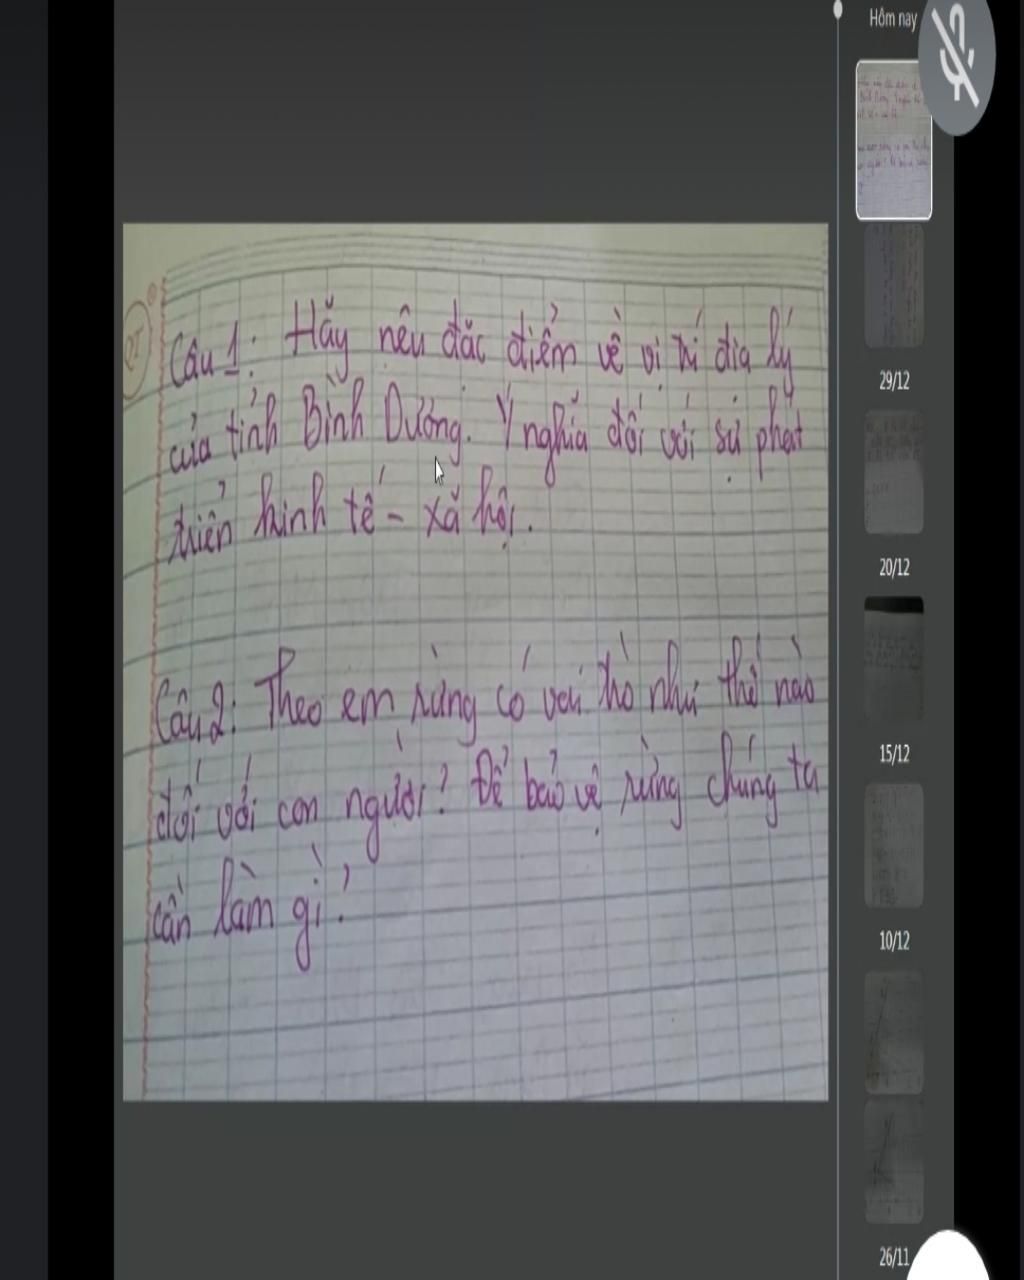 Hôm nay
Câu 1: Hãy nêu đặc điểm về vị trí địa lý
của tỉnh Bình Dương. Ý nghĩa đối với sự phát
triển kinh tế - xã hội.
Câu 2: Theo em rừng có vai trò như thế nào
đối với con người? Để bảo vệ rừng chúng ta
cần làm gì?
29/12
20/12
15/12
10/12
26/11